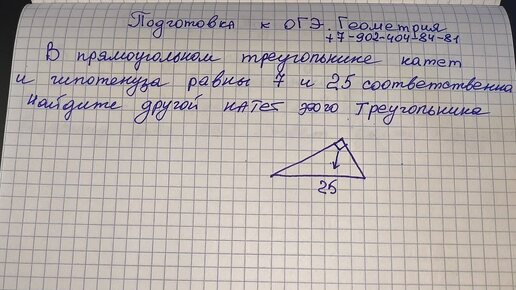 Подготовка к ОГЭ. Геометрия
+7-902-404-84-81
В прямоугольном треугольнике катет
и гипотенуза равны 7 и 25 соответственно
Найдите другой катет этого треугольника
25